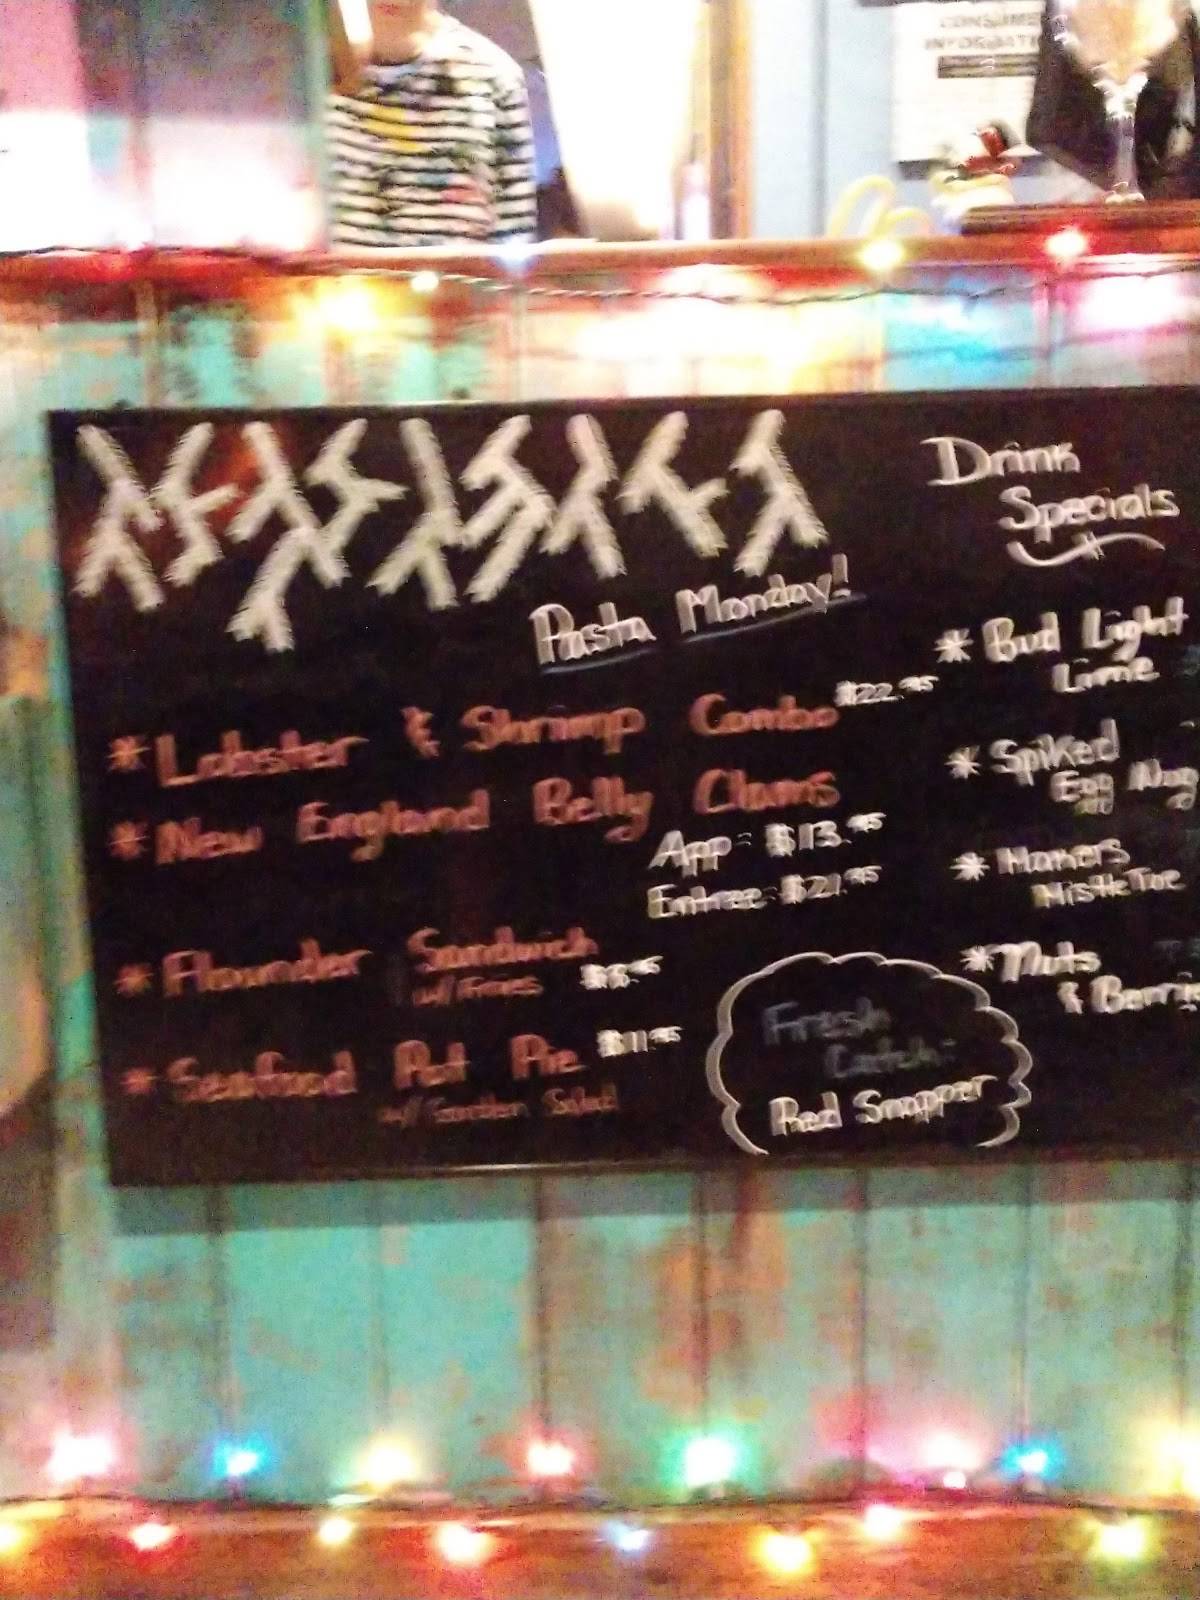 CONSUMER
INFORMATI
Pasta Monday!
* Lobster & Shrimp Combo $22.95
* New England Belly Clams
App - $13.95
Entree $21.95
* Flounder Sandwich
w/ Fries
* Seafood Pot Pie $11.95
w/ Garden Salad
Fresh
Catch:
Red Snapper
Drink
Specials
* Bud Light
Lime
* Spiked
Egg Nog
* Makers
Mistle Toe
* Nuts
& Berri